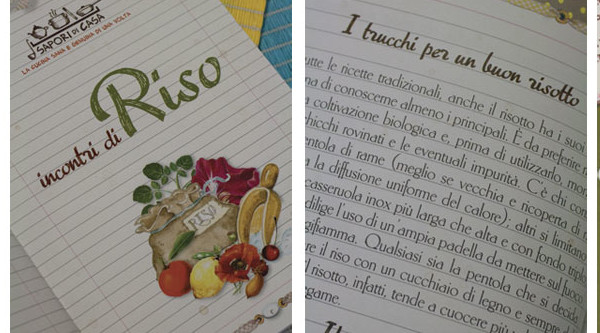 SAPORI DI CASA
LA CUCINA SANA E GENUINA DI UNA VOLTA
incontri di
Riso
RISO
I trucchi per un buon risotto
tutte le ricette tradizionali, anche il risotto ha i suoi
na di conoscerne almeno i principali. È da preferire
coltivazione biologica e, prima di utilizzarlo,
chicchi rovinati e le eventuali impurità. C'è chi
entola di rame (meglio se vecchia e ricoperta di
a la diffusione uniforme del calore), altri si limitano
casseruola inox più larga che alta e con fondo
dilige l'uso di un'ampia padella da mettere sul fuoco
gifiamma. Qualsiasi sia la pentola che si decida
re il riso con un cucchiaio di legno e sempre
l risotto, infatti, tende a cuocere
egame.